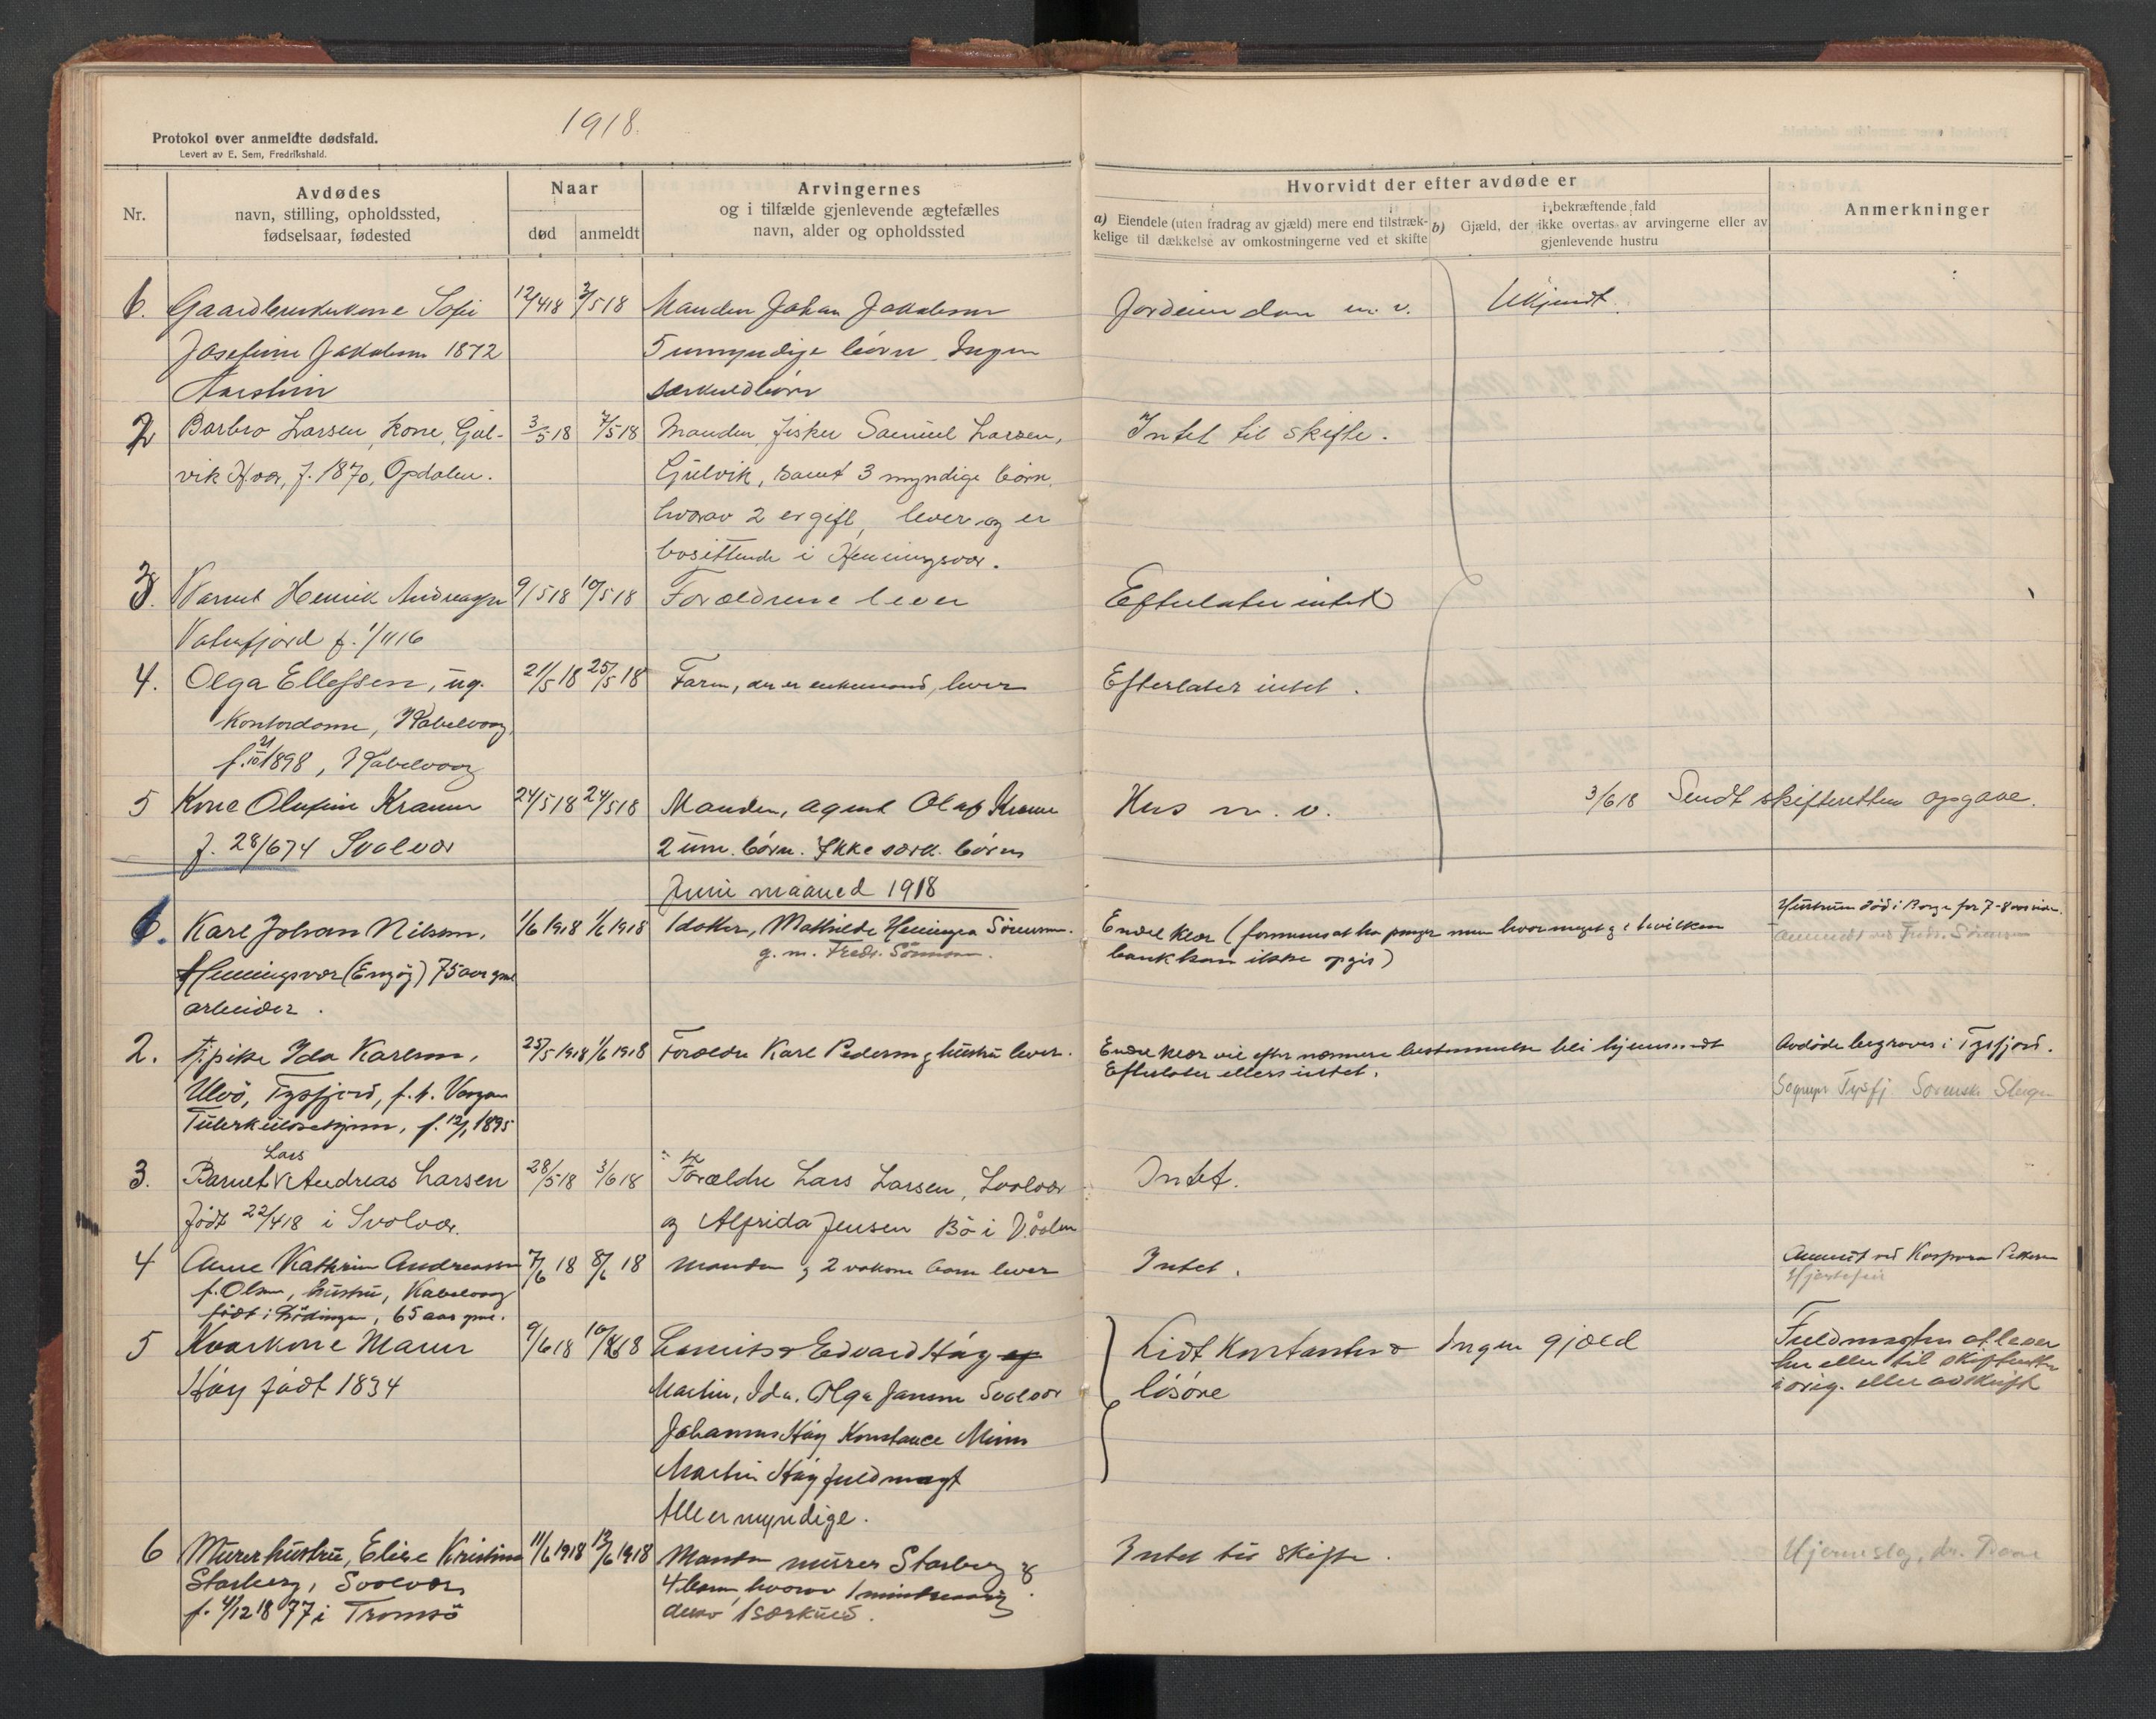 1918.
Protokol over anmeldte dødsfald.
Levert av E. Sem, Fredrikshald.
Nr.
Avdødes
navn, stilling, opholdssted,
fødselsaar, fødested
Naar
død
anmeldt
Arvingernes
og i tilfælde gjenlevende ægtefælles
navn, alder og opholdssted
Hvorvidt der efter avdøde er
a) Eiendele (uten fradrag av gjæld) mere end tilstræk-
kelige til dækkelse av omkostningerne ved et skifte
i bekræftende fald
b) Gjæld, der ikke overtas av arvingerne eller av
gjenlevende hustru
Anmerkninger
Gaardbrukerkone Sofie 12/4 18 3/5 18 Manden Johan Jakobsen Jordeiendom m. v. Ukjendt.
Josefine Jakobsen 1872 5 umyndige börn. Ingen
særkuldbörn
2 Barbro Larsen, kone, Gjul- 3/5 18 7/5 18 Manden, fisker Samuel Larsen, Intet til skifte.
vik H.vær, f. 1870, Opdalen. Gjulvik, samt 3 myndige börn,
hvorav 2 er gift, lever og er
bosittende i Henningsvær.
3. Barnet Henrik Andreassen 9/5 18 10/5 18 Forældrene lever Efterlater intet
Vaterfjord f. 1/11 16
4. Olga Ellefsen, ug. 21/5 18 25/5 18 Faren, der er enkemand, lever Efterlater intet.
Kontordame, Kabelvaag,
f. 21/10 1898, Kabelvaag
5 Kone Olufine Kramer 24/5 18 24/5 18 Manden, agent Olaf Kramer Hus m. v. 3/6 18 Sendt skifteretten opgave.
f. 28/6 74 Svolvær 2 um. börn. Ikke særk. börn
Juni maaned 1918
Karl Johan Nilsen, 1/6 1918 1/6 1918 1 datter, Mathilde Henningea Sörensen. Endel klær (formenes at ha penger men hvor meget og i hvilken Hustruen död i Borge for 7-8 aar siden.
g. m. Fredr. Sörensen. bank kan ikke opgis) anmeldt ved Fredr. Sörensen
Henningsvær (Engöy) 75 aar gml
arbeider.
2. Tj.pike Ida Karlsen, 25/5 1918 1/6 1918 Forældre Karl Pedersen og hustru lever. Endel klær vil efter nærmere bestemmelse bli hjemsendt Avdöde begraves i Tysfjord.
Ulvö, Tysfjord, f. t. Vaagan Efterlater ellers intet.
Tuberkulosehjem, f. 12/1 1895 Tysfj.
3. Barnet Lars Andreas Larsen 28/5 18 3/6 18 Forældre Lars Larsen, Svolvær Intet.
födt 22/4 18 i Svolvær. og Alfrida Jensen Bö i V.aalen
4 Anne Kathrin Andreassen 7/6 18 8/6 18 Manden og 2 voksne barn lever Intet. Anmeldt ved Kaspara Pettersen
f. Olsen, hustru, Kabelvaag Hjertefeil
födt i Lödingen, 65 aar gml.
5 Kaarkone Maren 9/6 18 10/6 18 Edvard Höy Lidt kontanter & Ingen gjæld Fuldmagten at lever
Höy födt 1834 Martin, Ida, Olga Jansen Svolvær lösöre her eller til skifteretten
i orig. eller avskrift
Johannes Höy Konstance
Martin Höy fuldmagt
Alle er myndige.
6 Murerhustru, Elise Kristine 11/6 1918 13/6 1918 Manden murer Starberg & Intet til skifte. Hjerneslag, dr.
Starberg, Svolvær, 4 barn, hvorav 1 mindreaarig
f. 4/12 1877 i Tromsö derav 1 særkuld.